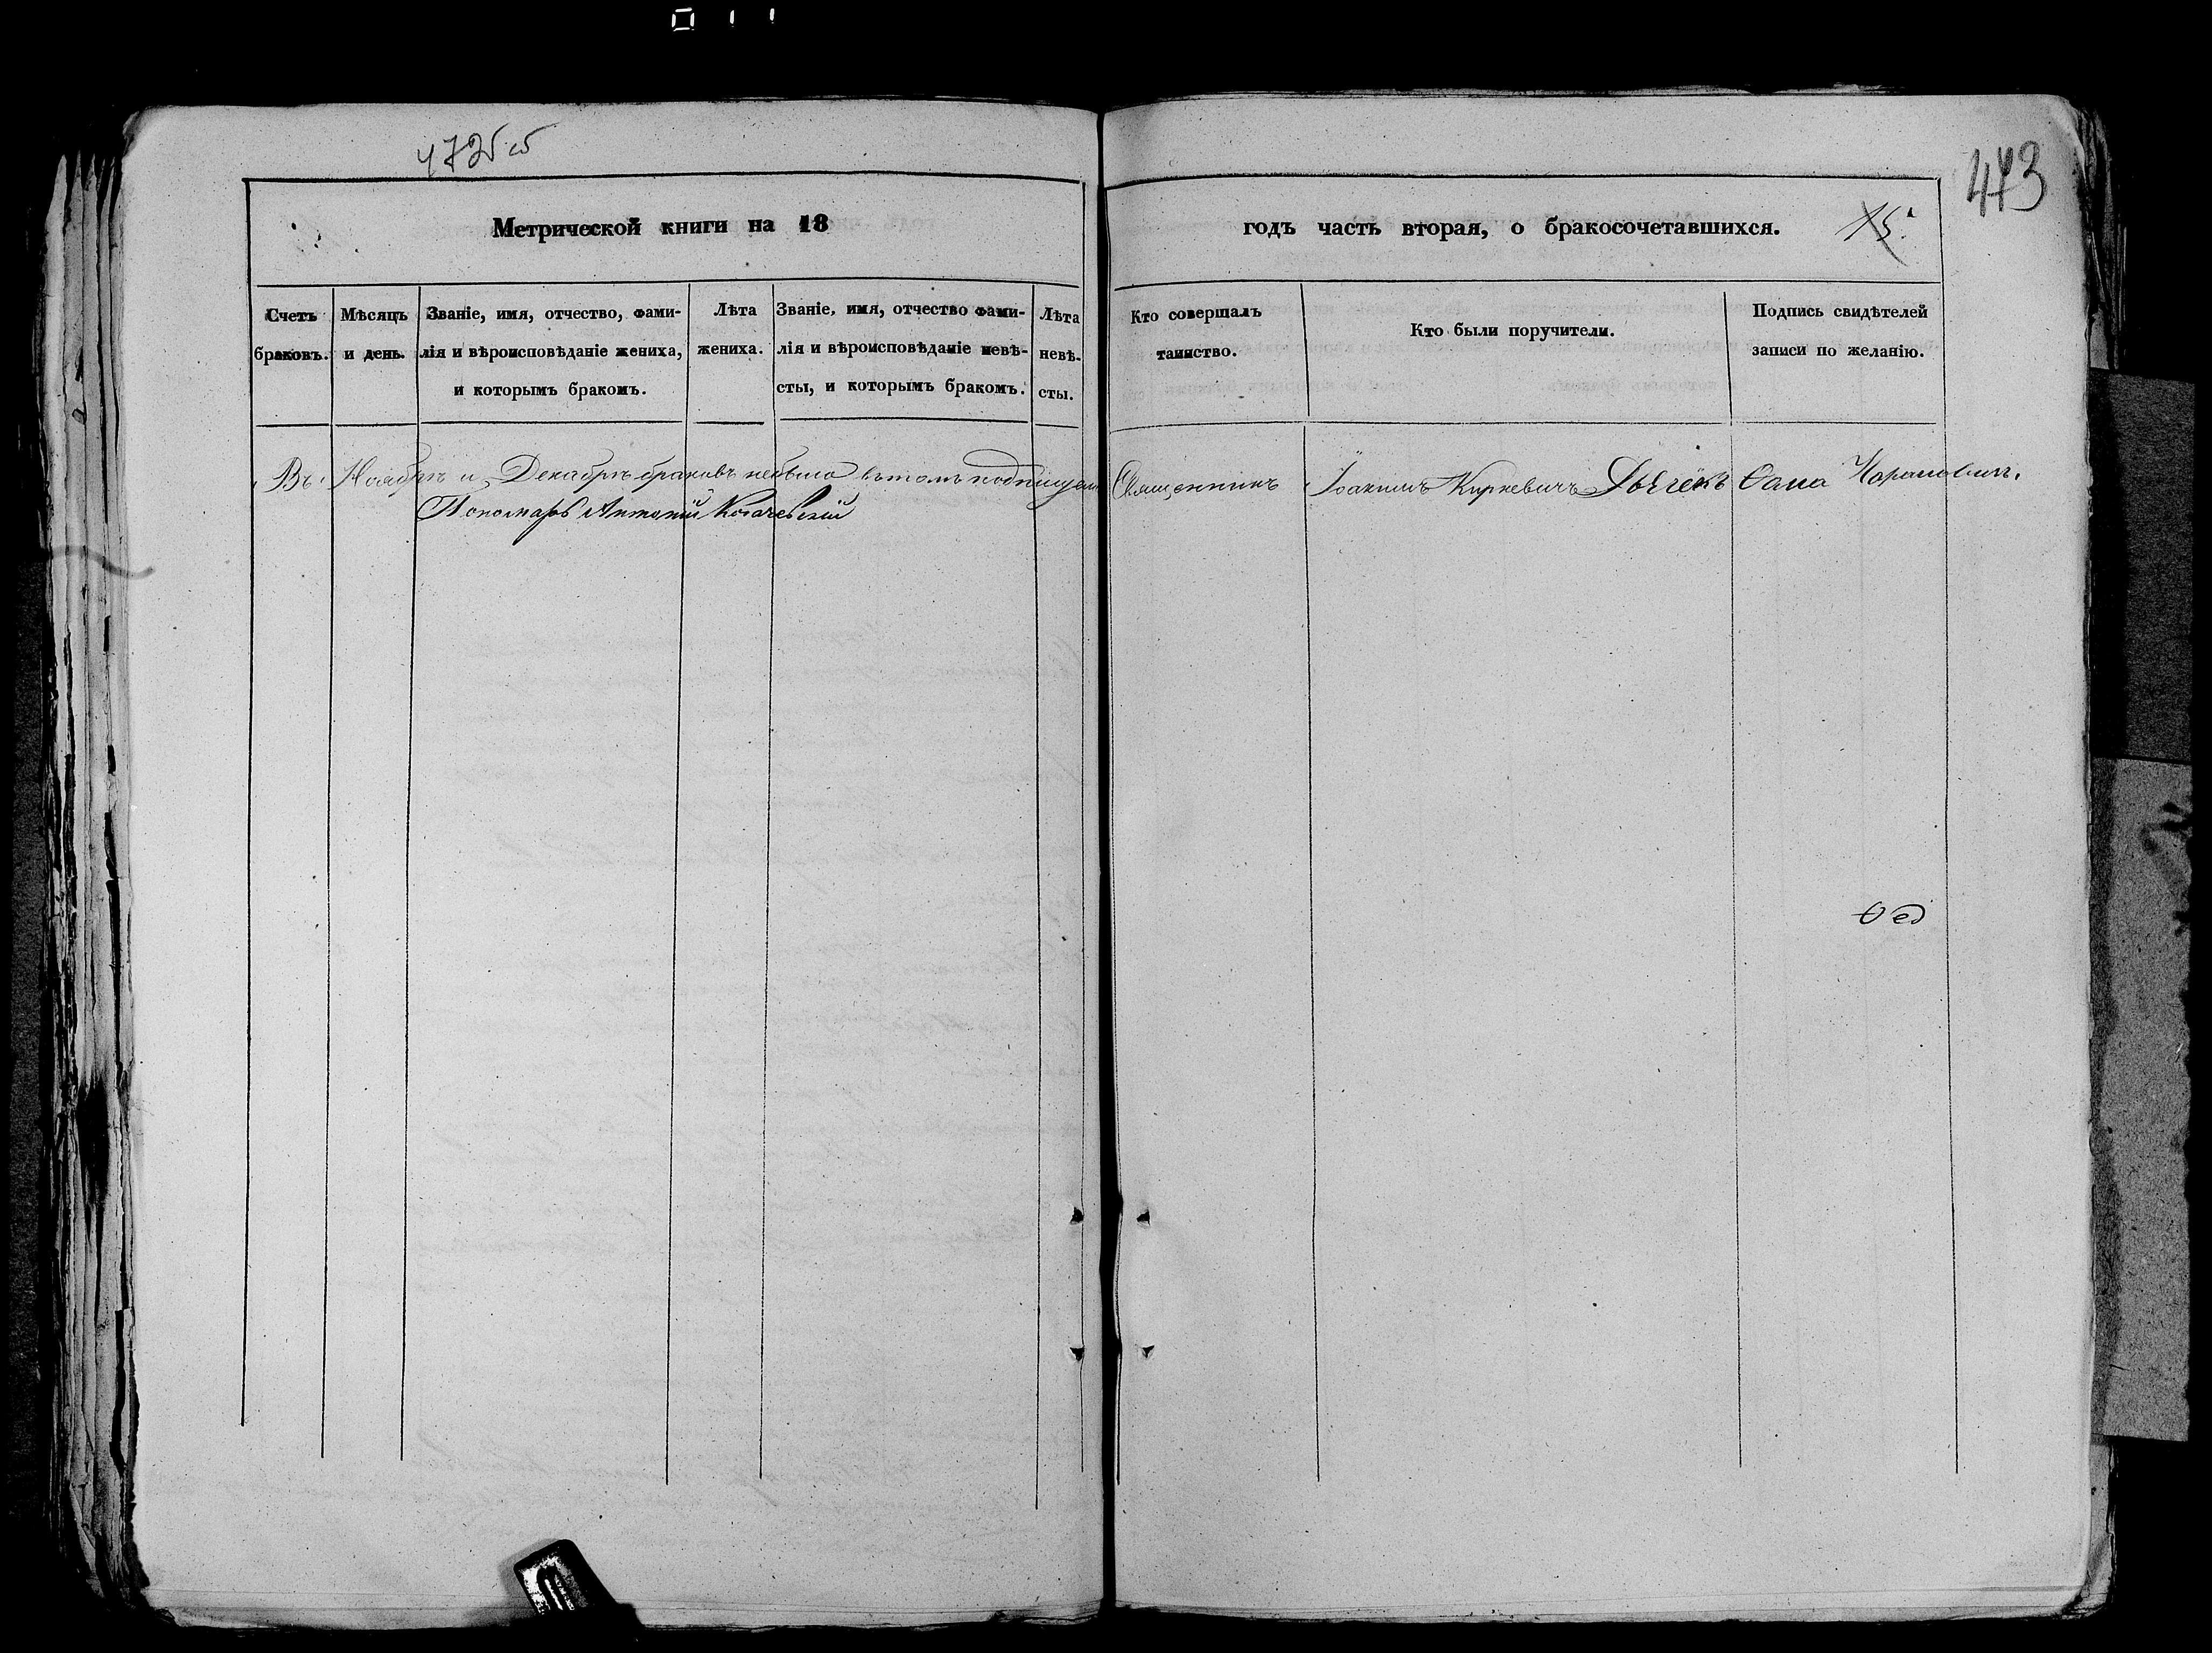 472 об
473
Метрической книги на 18
годъ часть вторая, о бракосочетавшихся.
15.
Счетъ браковъ.
Мѣсяцъ и день.
Званіе, имя, отчество, фами-
лія и вѣроисповѣданіе жениха,
и которымъ бракомъ.
Лѣта
жениха.
Званіе, имя, отчество фами-
лія и вѣроисповѣданіе невѣ-
сты, и которымъ бракомъ.
Лѣта
невѣ-
сты.
Кто совершалъ
таинство.
Кто были поручители.
Подпись свидѣтелей
записи по желанію.
Въ Ноябрѣ и Декабрѣ браковъ небыло вътомъ подпис Священникъ Іоакимъ Киркевичъ Дьячекъ Ѳама
Пономарь Антоній
Ѳед